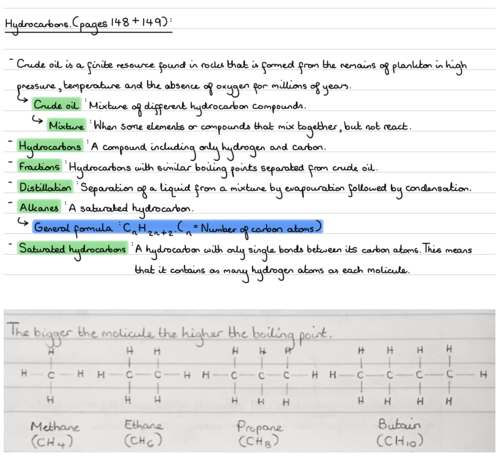 Hydrocarbons. (pages 148 + 149):
- Crude oil is a finite resource found in rocks that is formed from the remains of plankton in high
pressure, temperature and the absence of oxygen for millions of years.
↳ Crude oil: Mixture of different hydrocarbon compounds.
↳ Mixture: When some elements or compounds that mix together, but not react.
- Hydrocarbons: A compound including only hydrogen and carbon.
- Fractions: Hydrocarbons with similar boiling points separated from crude oil.
- Distillation: Separation of a liquid from a mixture by evapouration followed by condensation.
- Alkanes: A saturated hydrocarbon.
↳ General formula: CnH2n+2 (n = Number of carbon atoms)
- Saturated hydrocarbons: A hydrocarbon with only single bonds between its carbon atoms. This means
that it contains as many hydrogen atoms as each molecule.
The bigger the molicule the higher the boiling point.
H H H H H H H H H H
H - C - H H - C - C - H H - C - C - C - H H - C - C - C - C - H
H H H H H H H H H H
Methane Ethane Propane Butain
(CH4) (CH6) (CH8) (CH10)